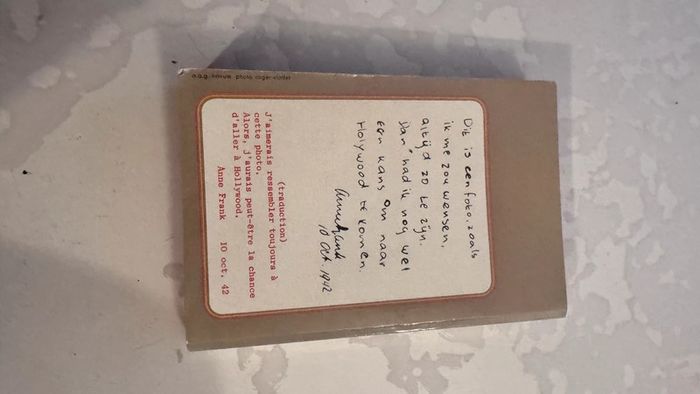 photo roger-viollet
Dit is een foto, zoals
ik me zou wensen,
altijd zo te zijn.
Dan had ik nog wel
een kans om naar
Holywood te komen.
Anne Frank
10 Oct. 1942
(traduction)
J'aimerais ressembler toujours à
cette photo.
Alors, j'aurais peut-être la chance
d'aller à Hollywood.
Anne Frank 10 oct. 42